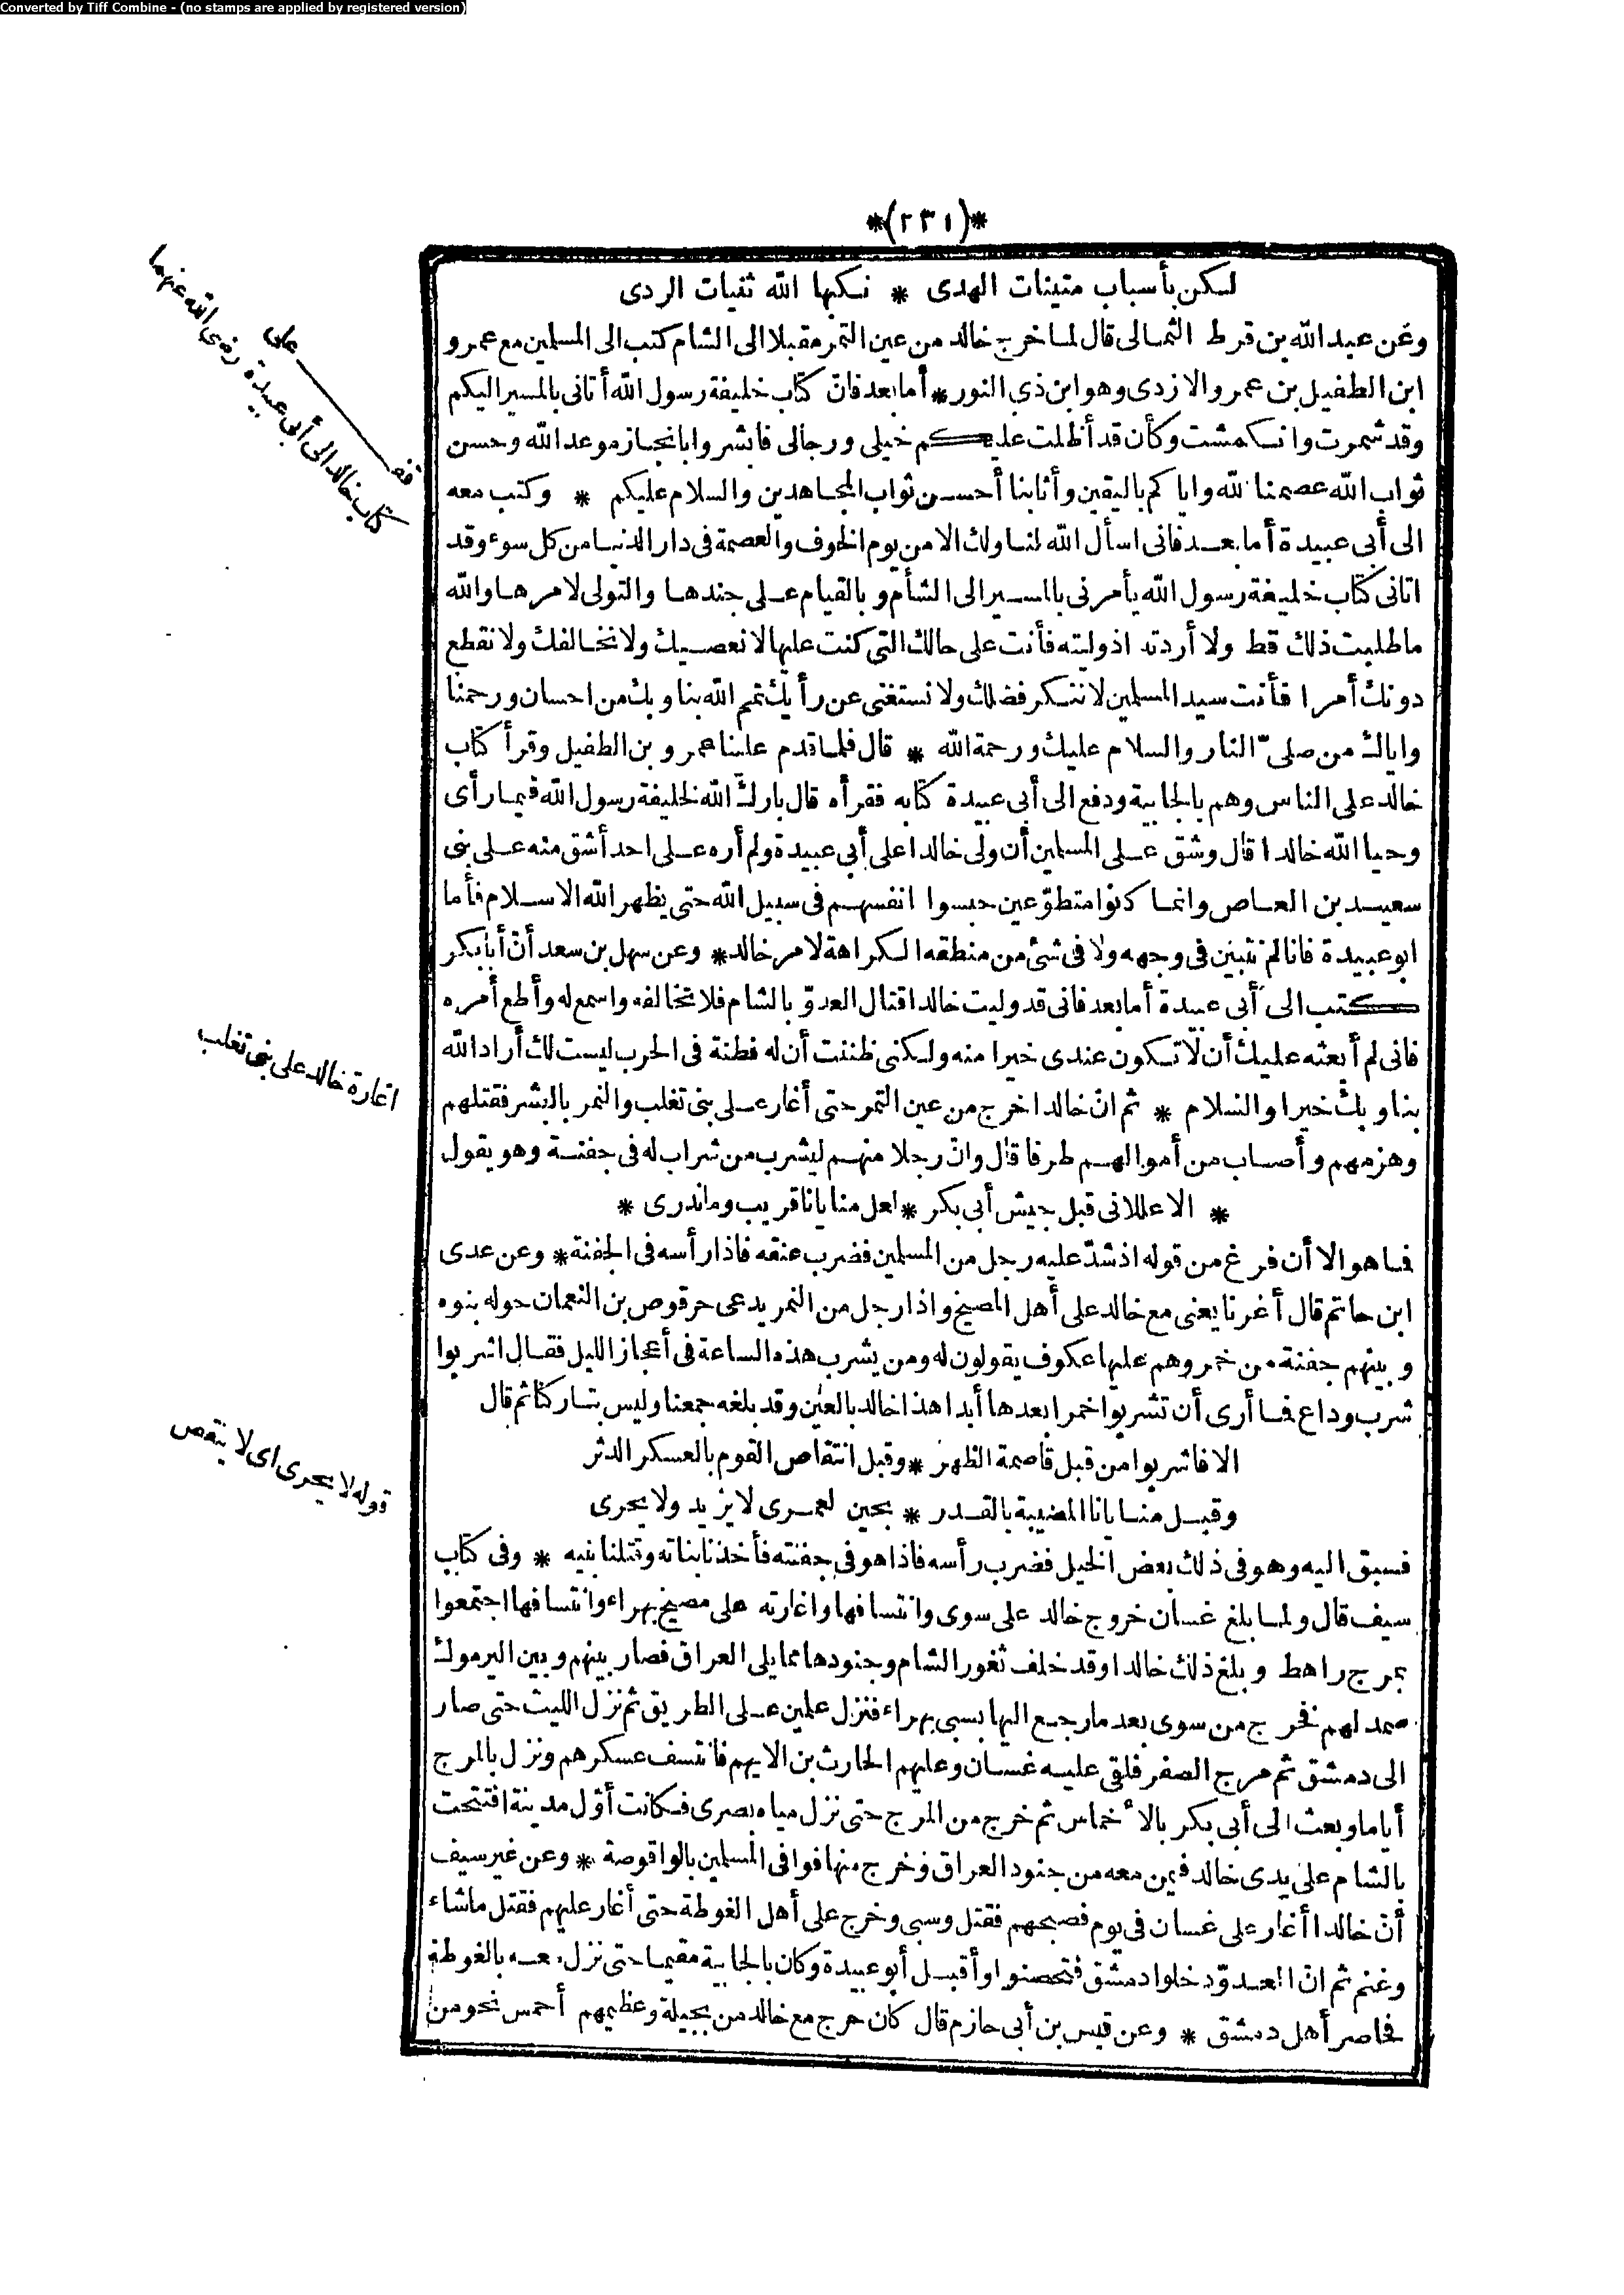 Converted by Tiff Combine - (no stamps are applied by registered version)
*(٢٣١)*
لكن بأسباب متينات الهدى * نكبها الله ثنيات الردى
وعن عبد الله بن قرط الثمالى قال لما خرج خالد من عين التمر مقبلا الى الشام كتب الى المسلمين مع عمرو
ابن الطفيل بن عمرو الازدى وهو ابن ذي النور * أما بعد فانّ كتاب خليفة رسول الله أتانى بالمسير اليكم
وقد شمرت وانكمشت وكأن قد أظلت عليكم خيلى ورجالى فابشروا بانجاز موعد الله وحسن
ثواب الله عصمنا الله واياكم باليقين وأثابنا أحسن ثواب المجاهدين والسلام عليكم * وكتب معه
الى أبى عبيدة أما بعد فانى اسأل الله لنا ولك الامن يوم الخوف والعصمة فى دار الدنيا من كل سوء وقد
اتانى كتاب خليفة رسول الله يأمرنى بالمسير الى الشأم وبالقيام على جندها والتولى لامرها والله
ما طلبت ذلك قط ولا أردته اذ وليته فأنت على حالك التى كنت عليها لا نعصيك ولا نخالفك ولا نقطع
دونك أمرا فأنت سيد المسلمين لا ننكر فضلك ولا نستغنى عن رأيك تمم الله بنا وبك من احسان ورحمنا
واياك من صلىّ النار والسلام عليك ورحمة الله * قال فلما قدم علينا عمرو بن الطفيل وقرأ كتاب
خالد على الناس وهم بالجابية ودفع الى أبى عبيدة كتابه فقرأه قال بارك الله لخليفة رسول الله فيما رأى
وحيا الله خالدا قال وشق على المسلمين أن ولى خالدا على أبى عبيدة ولم أره على احد أشق منه على بنى
سعيد بن العاص وانما كانوا متطوّعين حبسوا انفسهم فى سبيل الله حتى يظهر الله الاسلام فأما
ابو عبيدة فانا لم نتبين فى وجهه ولا فى شئ من منطقه الكراهة لامر خالد * وعن سهل بن سعد أنّ أبا بكر
كتب الى أبى عبيدة أما بعد فانى قد وليت خالدا قتال العدوّ بالشام فلا تخالفه واسمع له وأطع أمره
فانى لم أبعثه عليك أن لا تكون عندى خيرا منه ولكنى ظننت أن له فطنة فى الحرب ليست لك أراد الله
بنا وبك خيرا والسلام * ثم انّ خالدا خرج من عين التمر حتى أغار على بنى تغلب والنمر بالبشر فقتلهم
وهزمهم وأصاب من أموالهم طرفا قال وانّ رجلا منهم ليشرب من شراب له فى جفنة وهو يقول
* الا عللانى قبل جيش أبى بكر * لعل منايانا قريب وما ندرى *
فما هو الا أن فرغ من قوله اذ شدّ عليه رجل من المسلمين فضرب عنقه فاذا رأسه فى الجفنة * وعن عدى
ابن حاتم قال أغرنا يعنى مع خالد على أهل المصيخ واذا رجل من النمر يدعى حرقوص بن النعمان حوله بنوه
وبينهم جفنة من خمر وهم عليها عكوف يقولون له ومن يشرب هذه الساعة فى أعجاز الليل فقال اشربوا
شرب وداع فما أرى أن تشربوا خمرا بعدها أبدا هذا خالد بالعين وقد بلغه جمعنا وليس بتاركنا ثم قال
الا فاشربوا من قبل قاصمة الظهر * وقبل انتقاص القوم بالعسكر الدثر
وقبل منايانا المصيبة بالقدر * بحين لعمرى لا يزيد ولا يحرى
فسبق اليه وهو فى ذلك بعض الخيل فضرب رأسه فاذا هو فى جفنته فأخذنا بناته وقتلنا بنيه * وفى كتاب
سيف قال ولما بلغ غسان خروج خالد على سوى وانتسافها واغارته على مصيخ بهراء وانتسافها اجتمعوا
بمرج راهط وبلغ ذلك خالدا وقد خلف ثغور الشام وجنودها مما يلى العراق فصار بينهم وبين اليرموك
صمد لهم فخرج من سوى بعد ما رجع اليها بسبى بهراء فنزل علمين على الطريق ثم نزل الليث حتى صار
الى دمشق ثم مرج الصفر فلقى عليه غسان وعليهم الحارث بن الايهم فانتسف عسكرهم ونزل بالمرج
أياما وبعث الى أبى بكر بالأخماس ثم خرج من المرج حتى نزل مياه بصرى فكانت أوّل مدينة افتتحت
بالشام على يدى خالد فيمن معه من جنود العراق وخرج منها فوافى المسلمين بالواقوصة * وعن غير سيف
أنّ خالدا أغار على غسان فى يوم فصبحهم فقتل وسبى وخرج على أهل الغوطة حتى أغار عليهم فقتل ما شاء
وغنم ثم ان العدوّ دخلوا دمشق فتحصنوا وأقبل أبو عبيدة وكان بالجابية مقيما حتى نزل معه بالغوطة
فحاصر أهل دمشق * وعن قيس بن أبى حازم قال كان خرج مع خالد من بجيلة وعظيمهم أحمس نحو من
قف على
كتاب خالد الى أبى عبيدة رضى الله عنهما
اغارة خالد على بنى تغلب
قوله لا يحرى اى لا ينقص